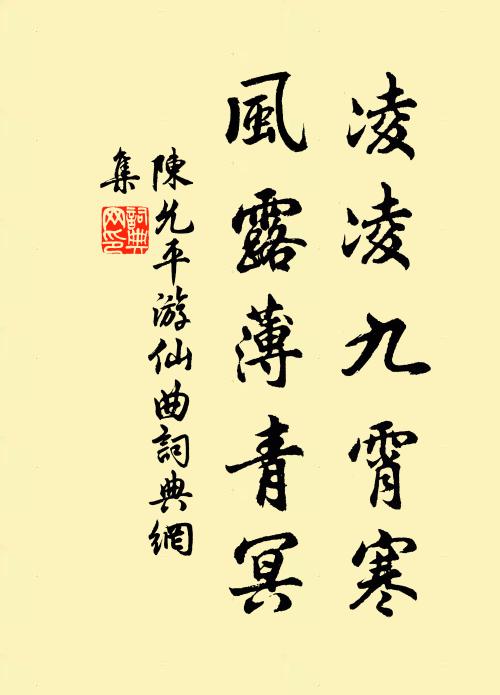 凌凌九霄寒
風露薄青冥
陳允平游仙曲詞典網
集
詞典網印